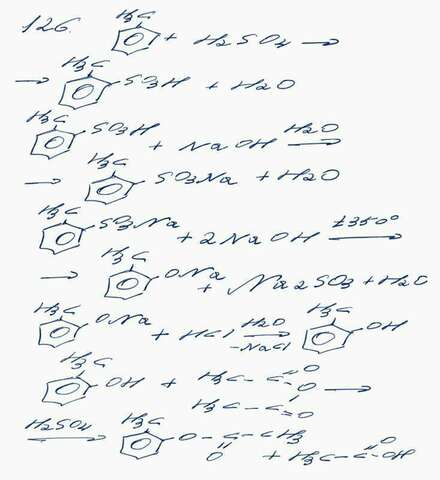 126. H₃C + H₂SO₄ →
→ H₃C SO₃H + H₂O
H₃C SO₃H + NaOH H₂O →
→ H₃C SO₃Na + H₂O
H₃C SO₃Na + 2NaOH t 350° →
→ H₃C ONa + Na₂SO₃ + H₂O
H₃C ONa + HCl H₂O → -NaCl H₃C OH
H₃C OH + H₃C – C = O O H₃C – C = O →
H₂SO₄ → H₃C O – C – CH₃ O + H₃C – C = O OH